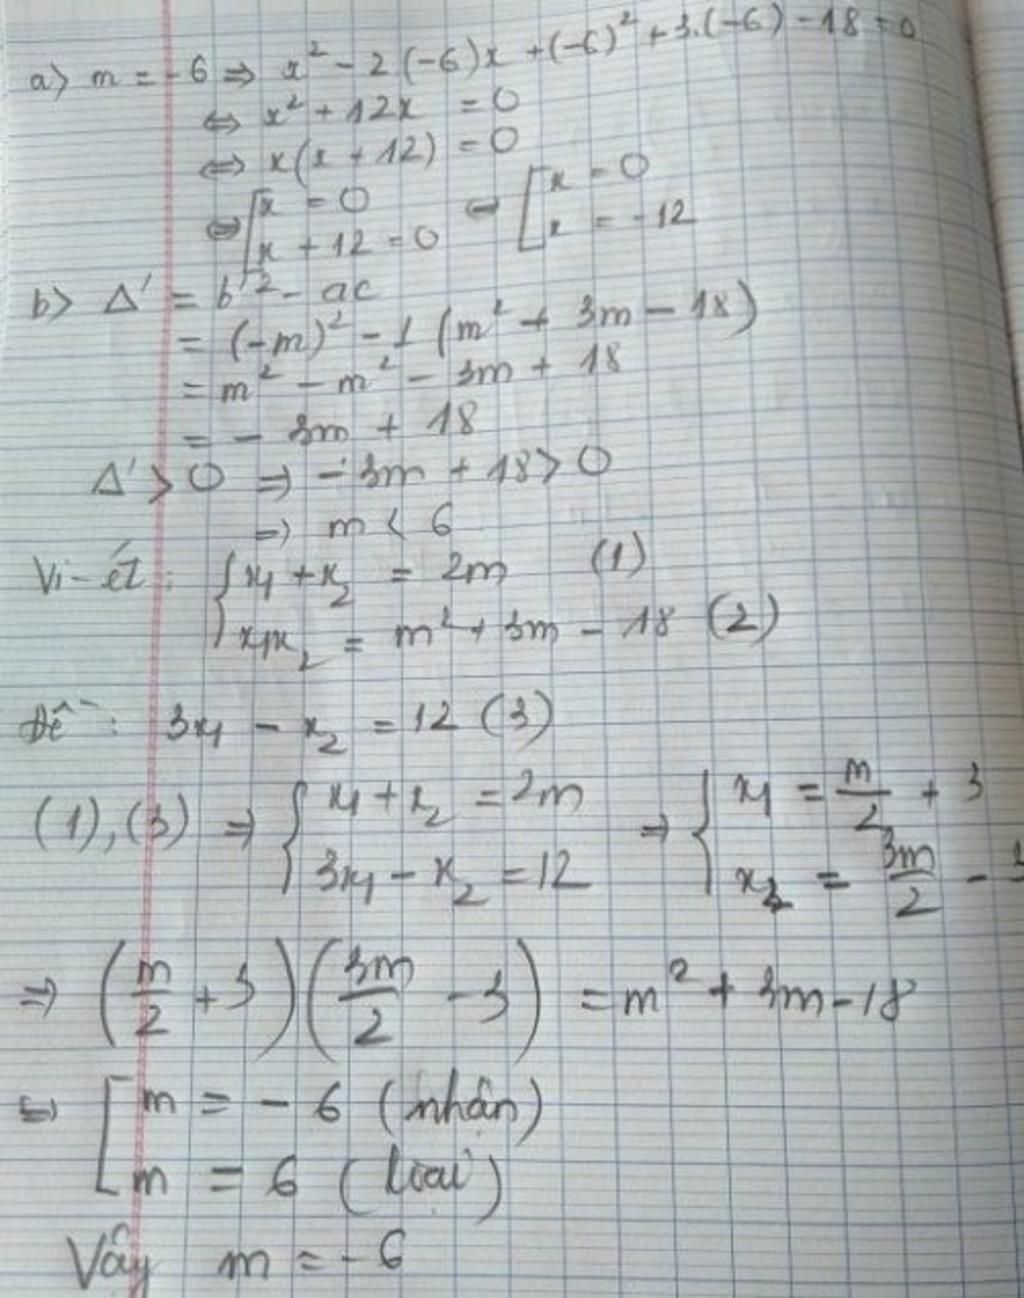 a) m = -6 ⇒ x² - 2(-6)x + (-6)² + 3.(-6) - 18 = 0
⇔ x² + 12x = 0
⇔ x(x + 12) = 0
⇔ [x = 0 ⇔ [x = 0
x + 12 = 0 x = -12
b) Δ' = b'² - ac
= (-m)² - 1(m² + 3m - 18)
= m² - m² - 3m + 18
= - 3m + 18
Δ' > 0 ⇒ -3m + 18 > 0
⇒ m < 6
Vi-ét: { x₁ + x₂ = 2m (1)
x₁x₂ = m² + 3m - 18 (2)
Đề: 3x₁ - x₂ = 12 (3)
(1), (3) ⇒ { x₁ + x₂ = 2m ⇒ { x₁ = m/2 + 3
3x₁ - x₂ = 12 x₂ = 3m/2 - 3
⇒ (m/2 + 3)(3m/2 - 3) = m² + 3m - 18
⇔ [m = - 6 (nhận)
m = 6 (loại)
Vậy m = -6